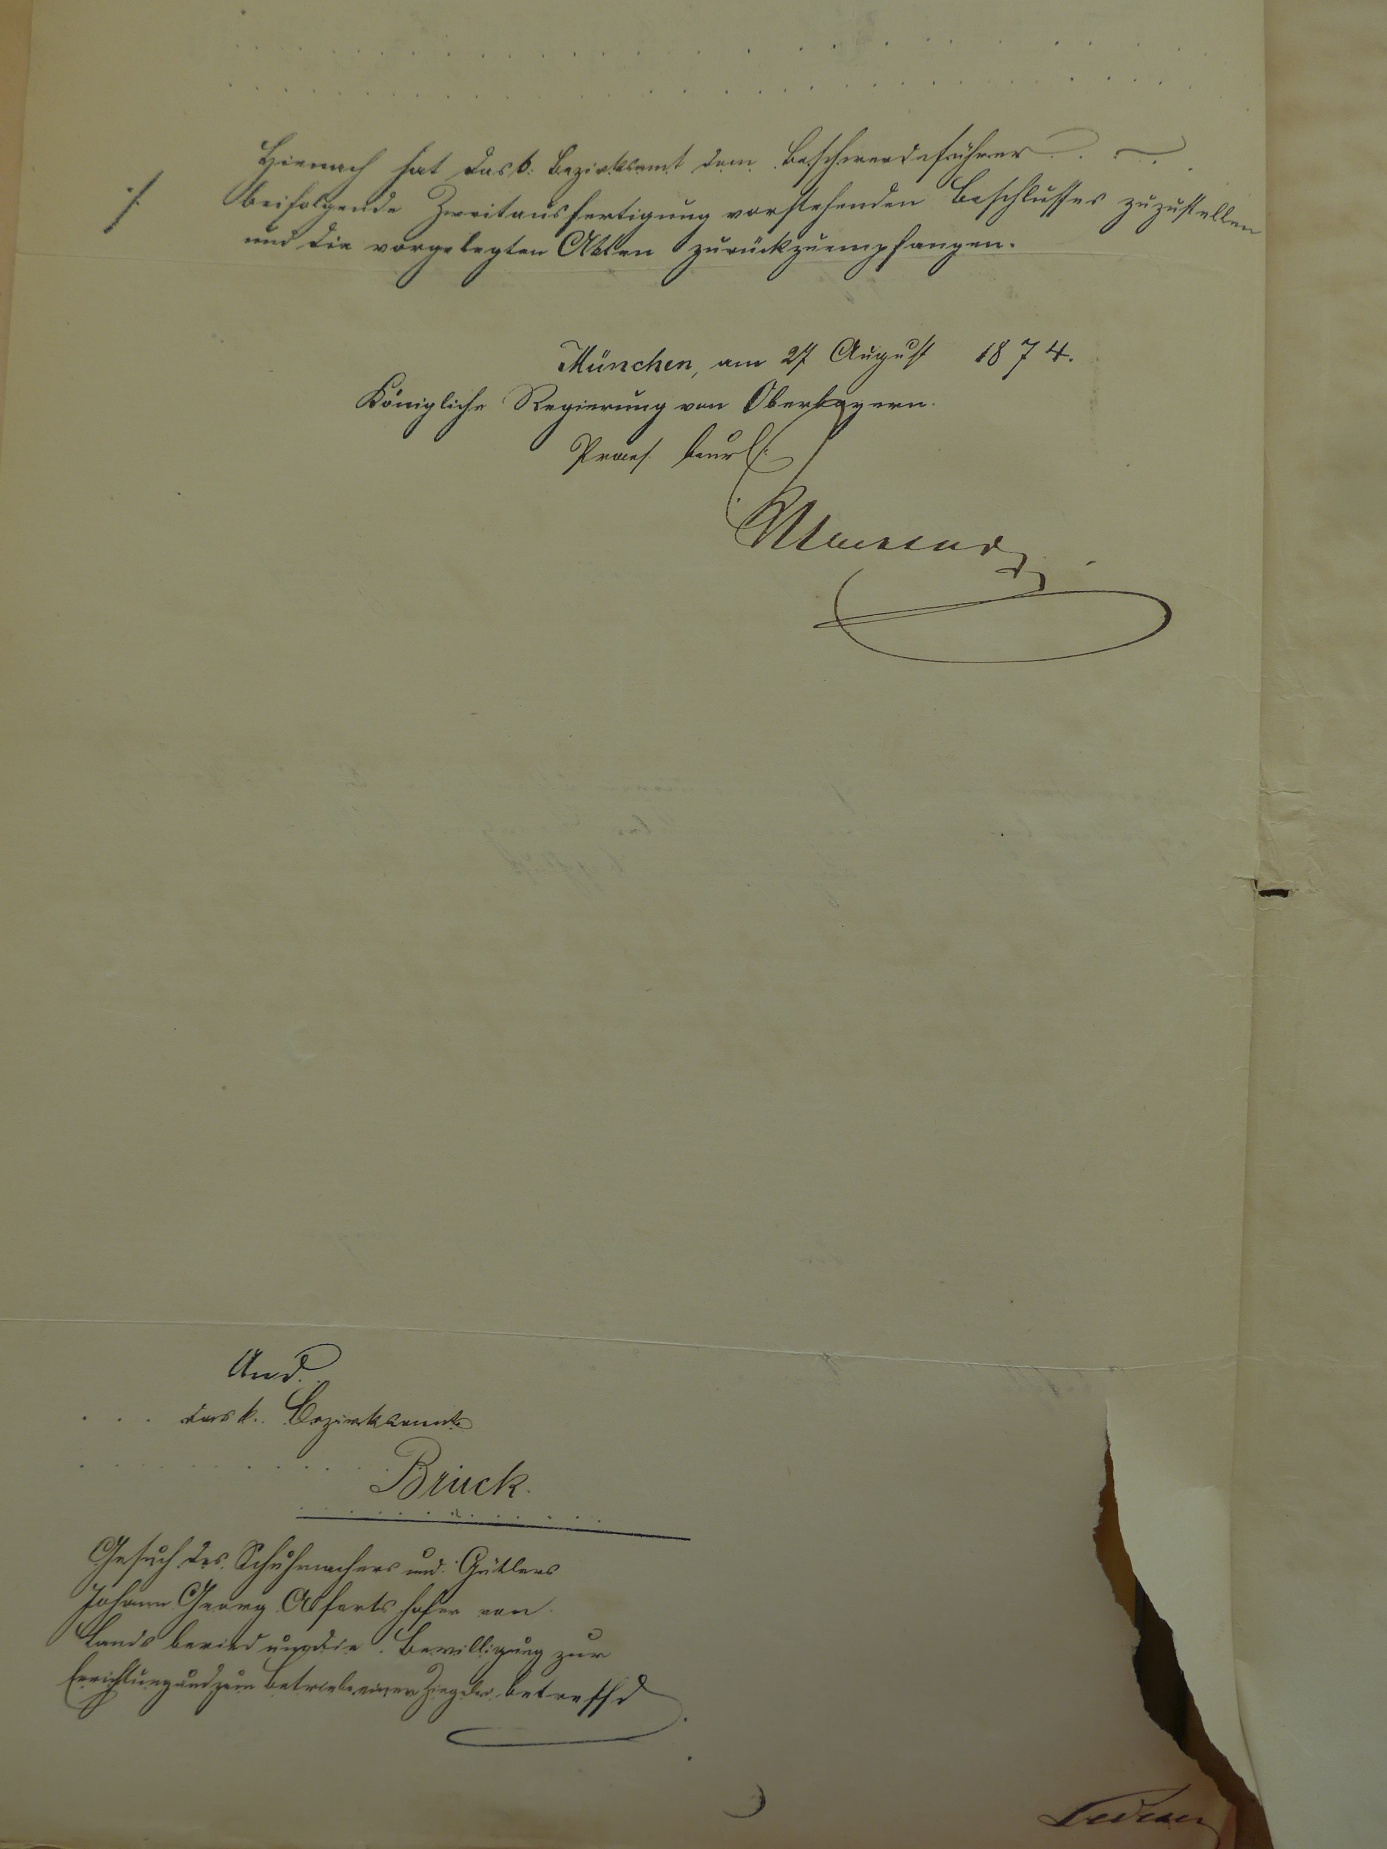 Hienach hat das k. Bezirksamt dem Beschwerdeführer
./. beifolgende Zweitausfertigung vorstehenden Beschlusses zuzustellen
und die vorgelegten Akten zurückzuempfangen.
München, am 27 August 1874.
Königliche Regierung von Oberbayern.
Praes. beurl.
An d.
das k. Bezirksamt
Bruck.
Gesuch des Schuhmachers und Gütlers
Johann Georg von
Landsberied um die Bewilligung zur
Errichtung und zum Betriebe einer Ziegelei betreffd